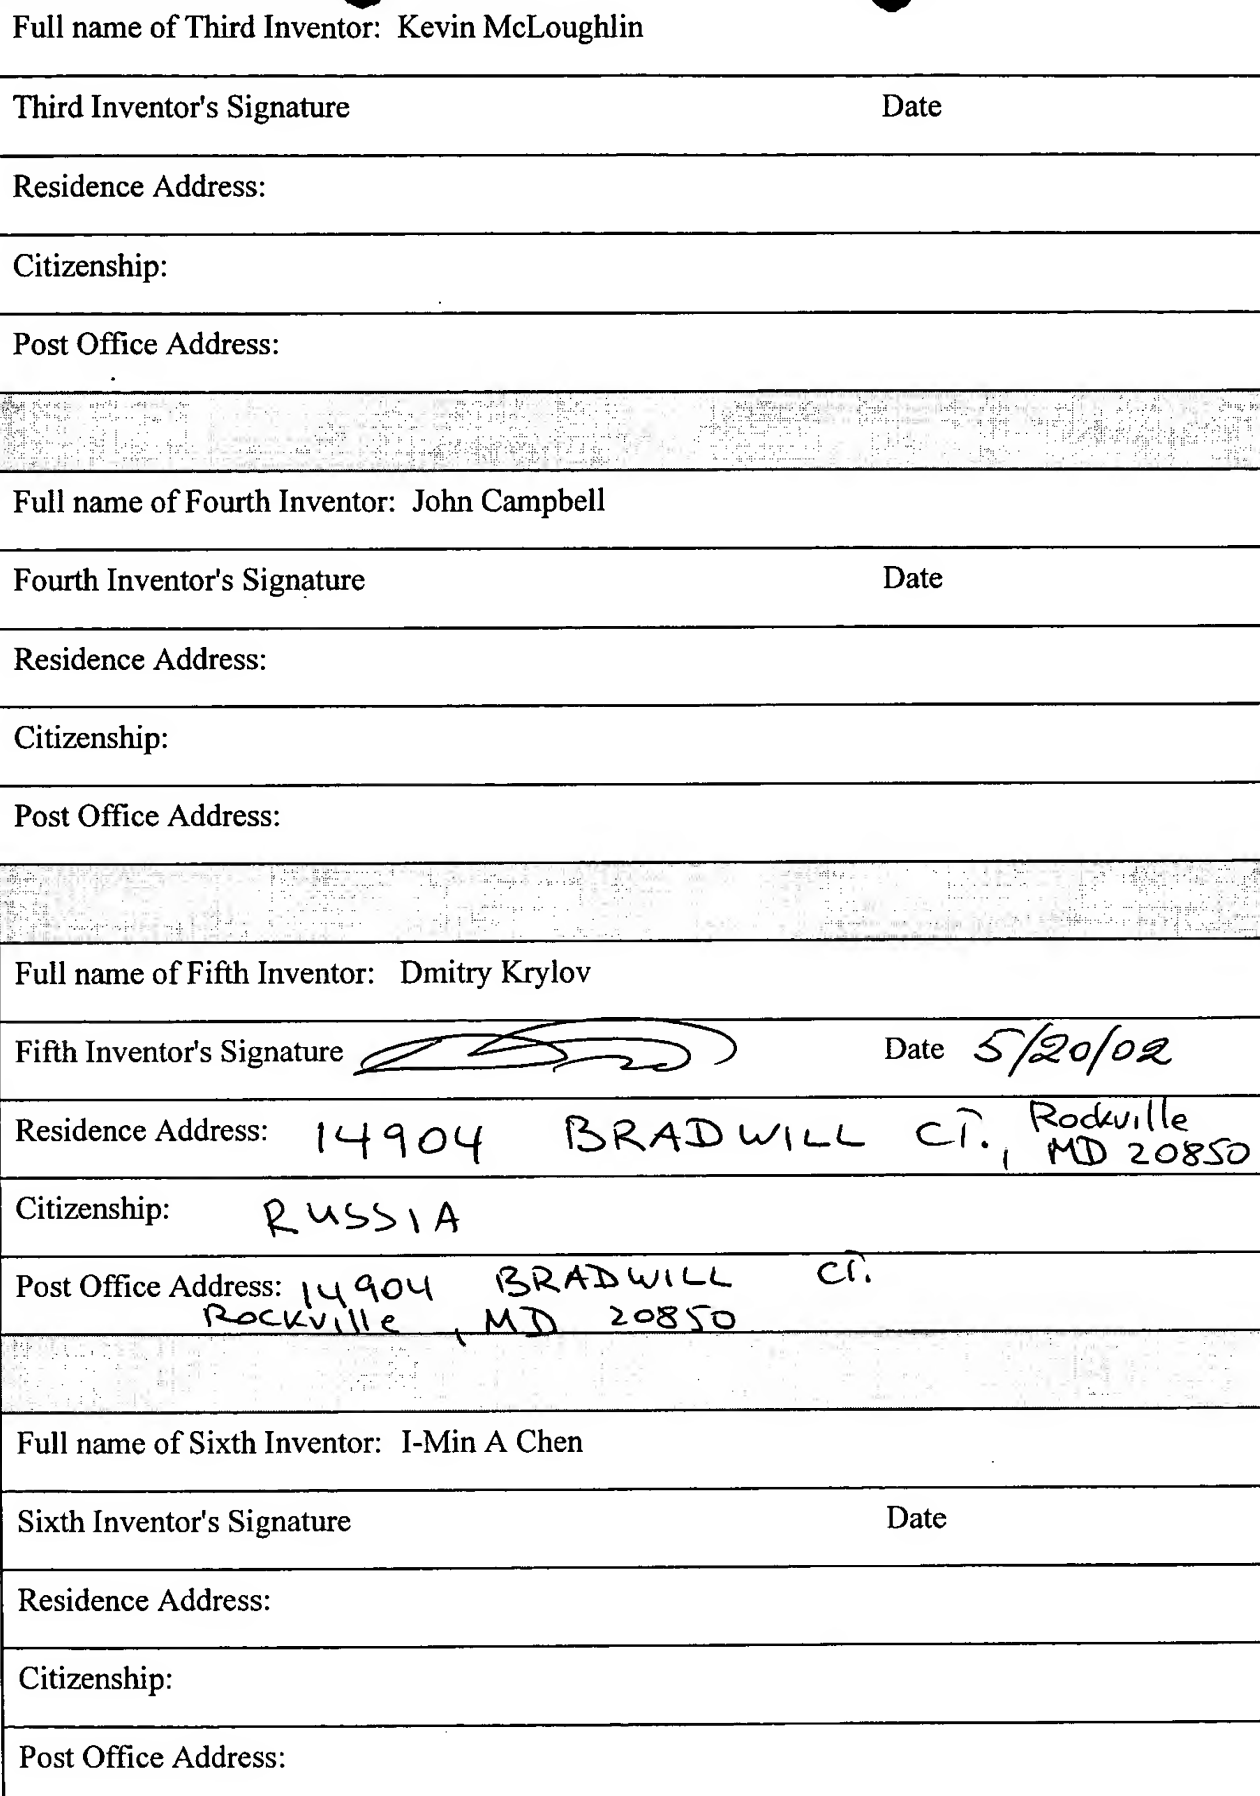 Full name of Third Inventor: Kevin McLoughlin
Third Inventor's Signature Date
Residence Address:
Citizenship:
Post Office Address:
Full name of Fourth Inventor: John Campbell
Fourth Inventor's Signature Date
Residence Address:
Citizenship:
Post Office Address:
Full name of Fifth Inventor: Dmitry Krylov
Fifth Inventor's Signature Date 5/20/02
Residence Address: 14904 BRADWILL CT., Rockville
MD 20850
Citizenship: RUSSIA
Post Office Address: 14904 BRADWILL CT.
Rockville, MD 20850
Full name of Sixth Inventor: I-Min A Chen
Sixth Inventor's Signature Date
Residence Address:
Citizenship:
Post Office Address: